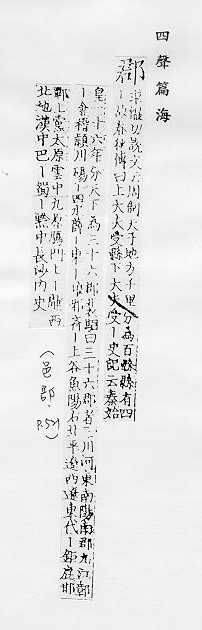 四聲篇海
郡 渠運切說文云周制天子地方千里分為百縣縣有四
一故春秋傳曰上大夫受縣下大夫受一史記云秦始
皇二十六年分天下為三十六郡裴駰曰三十六郡者三川河東南陽南郡九江鄣
一會稽潁川碭一泗水一薛一東一琅邪齊一上谷漁陽右北平遼西遼東代一鉅鹿邯
鄲上黨太原雲中九原鴈門上一隴西
北地漢中巴一蜀一黔中長沙內史
(邑部, P.521